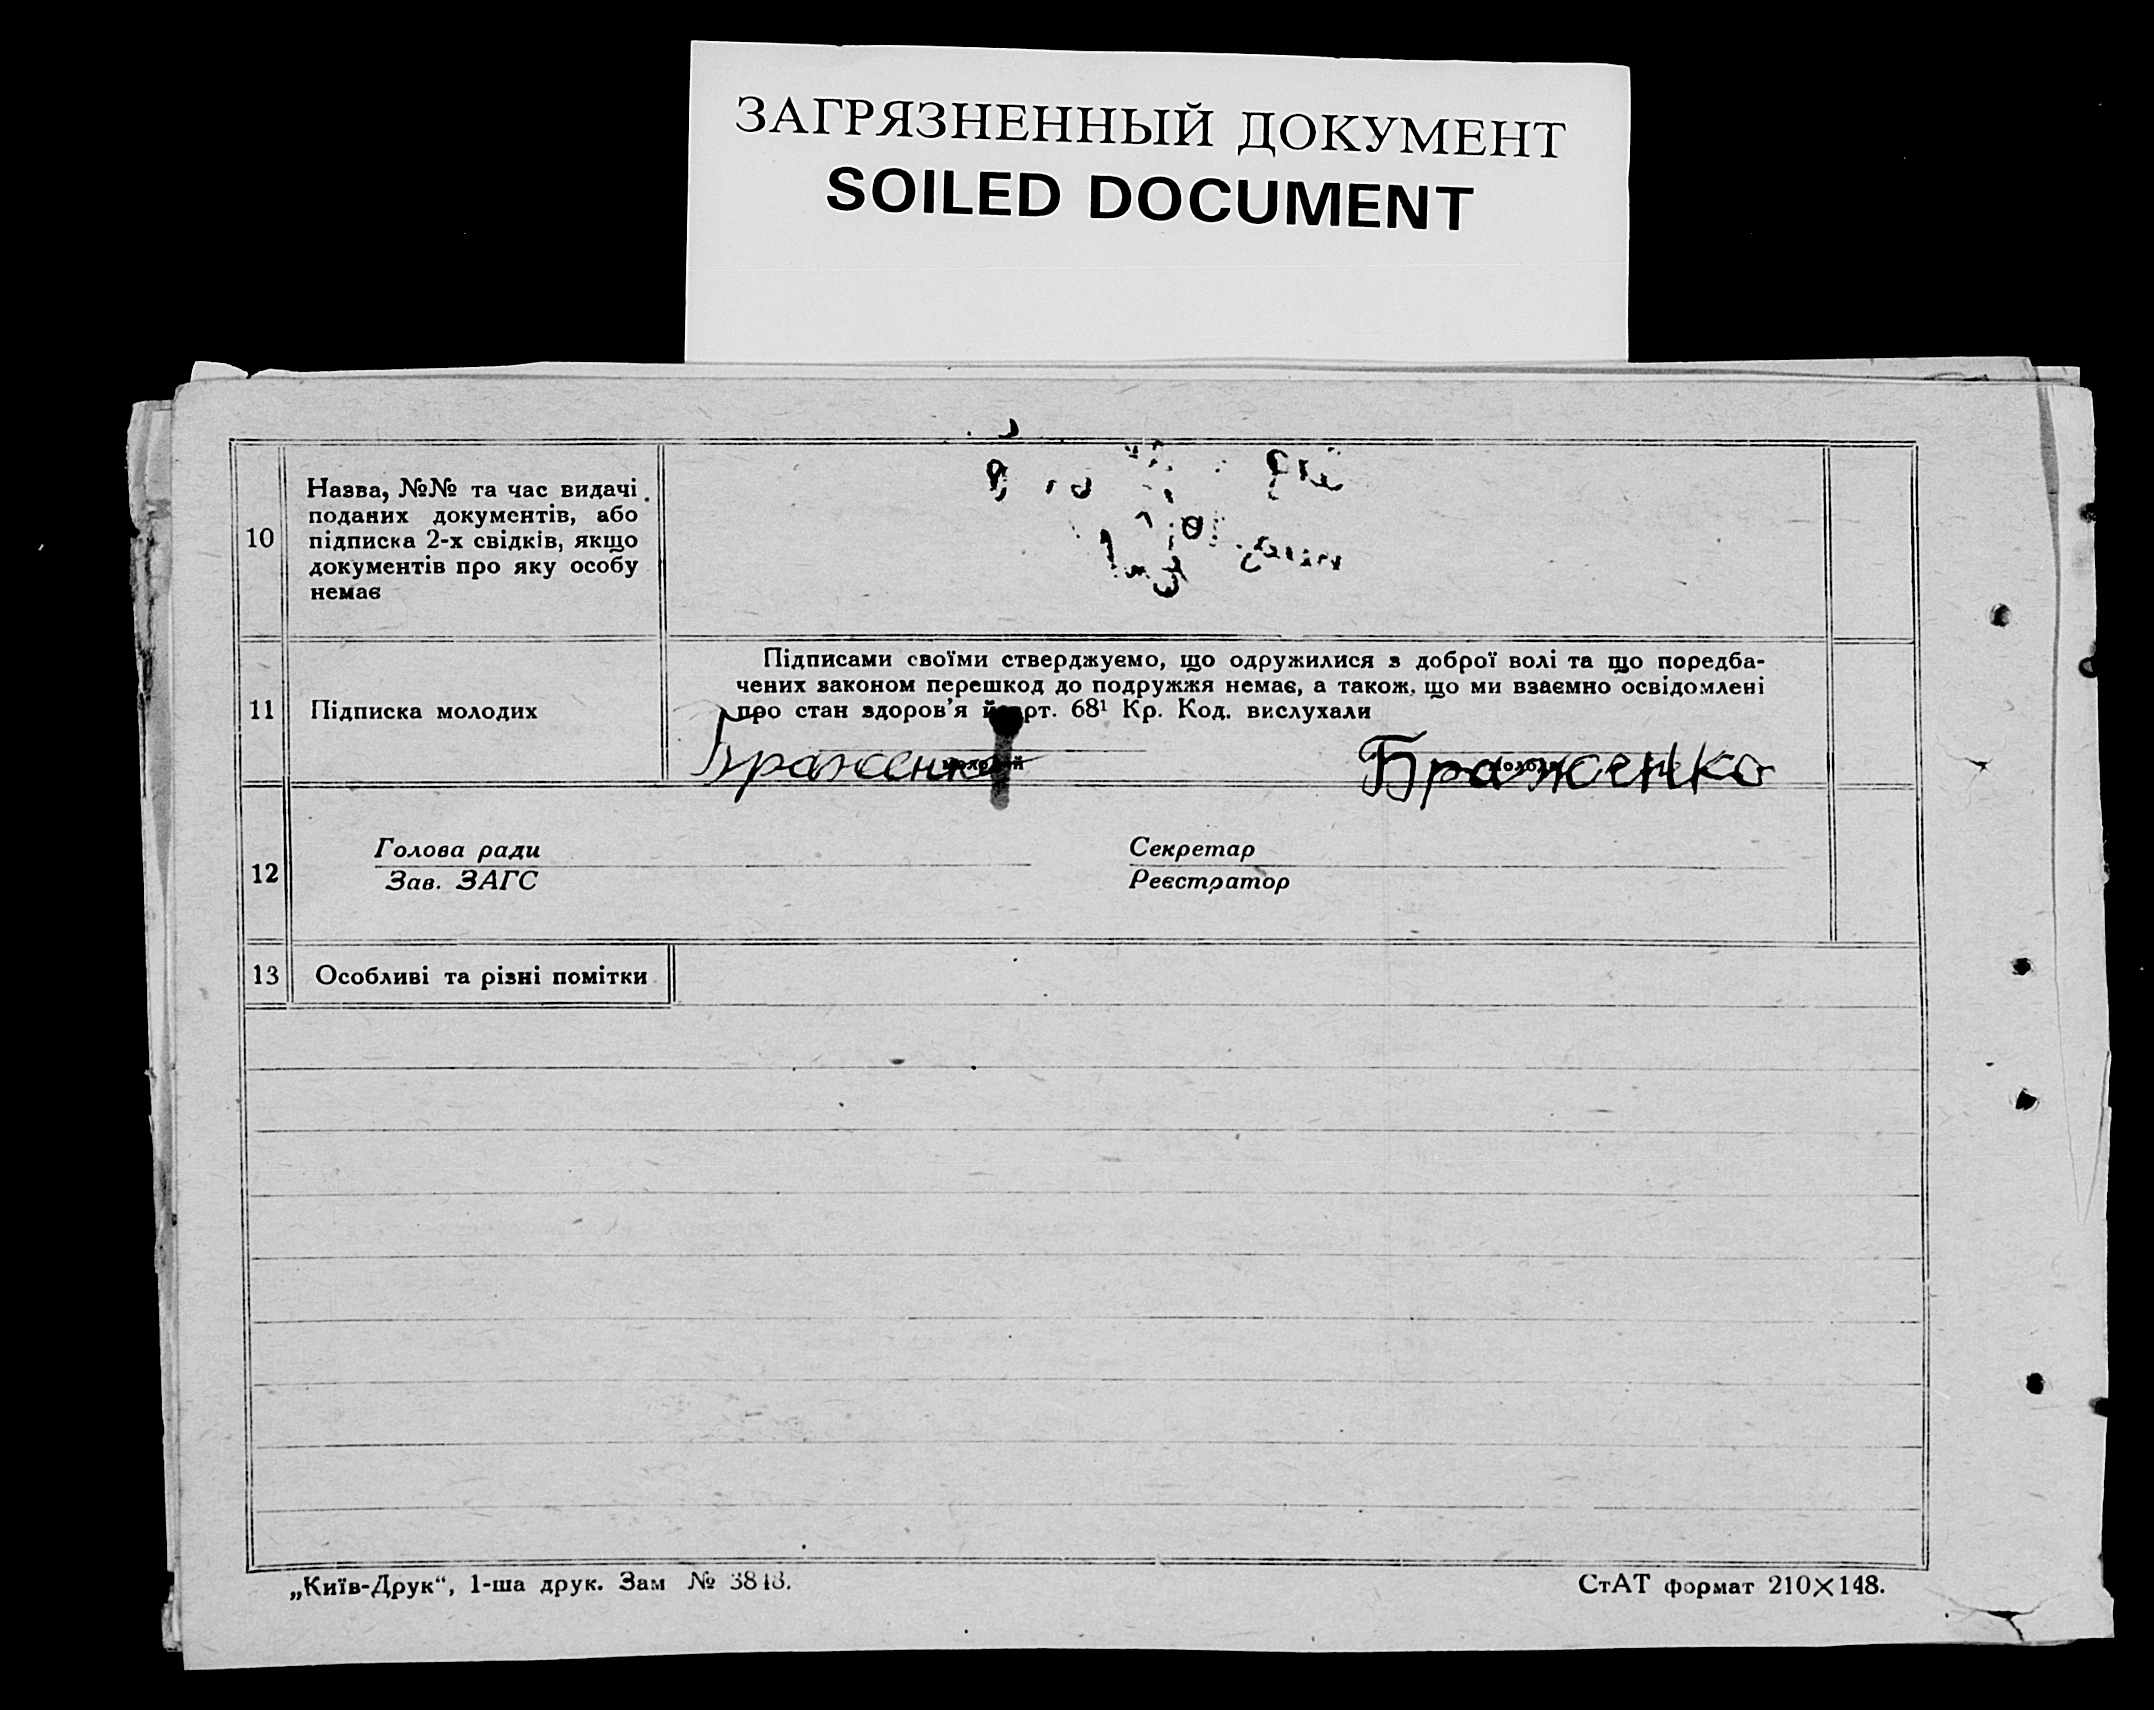 ЗАГРЯЗНЕННЫЙ ДОКУМЕНТ
SOILED DOCUMENT
10
Назва, №№ та час видачі
поданих документів, або
підписка 2-х свідків, якщо
документів про яку особу
немає
11
Підписка молодих
Підписами своїми стверджуємо, що одружилися з доброї волі та що поредба-
чених законом перешкод до подружжя немає, а також, що ми взаємно освідомлені
про стан здоров'я й арт. 68¹ Кр. Код. вислухали
Браженко
молодий
Браженко
12
Голова ради
Зав. ЗАГС
Секретар
Реєстратор
13
Особливі та різні помітки
„Київ-Друк“, 1-ша друк. Зам №
СтАТ формат 210×148.